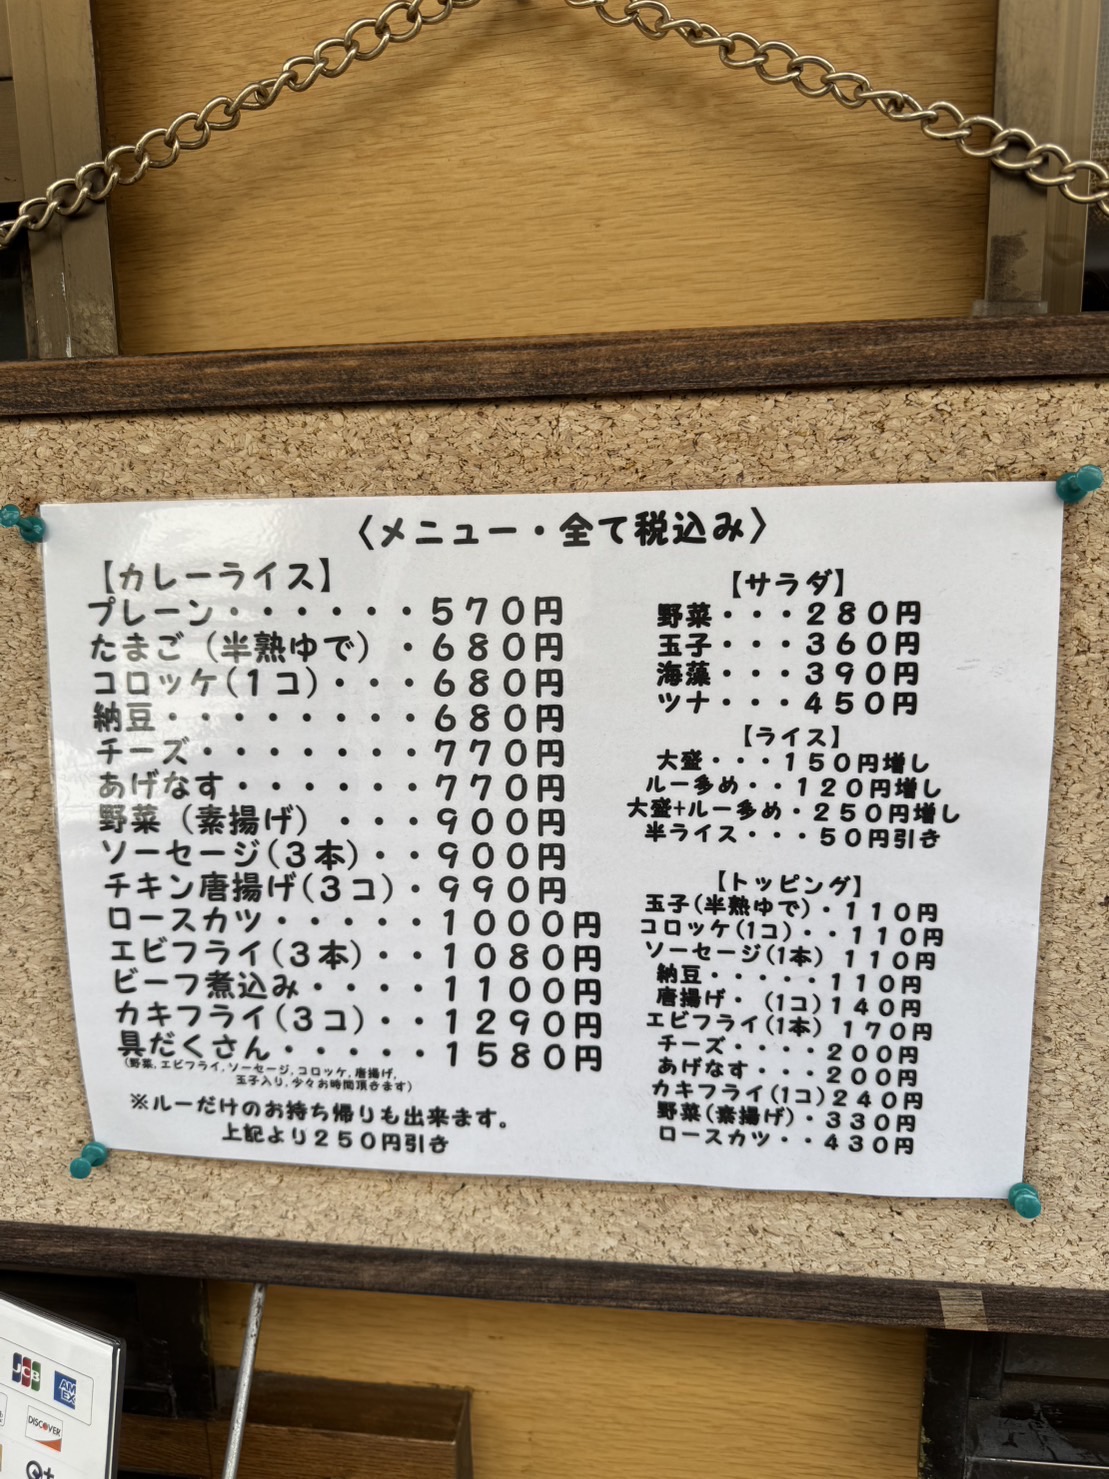 〈メニュー・全て税込み〉
【カレーライス】
プレーン・・・・・・570円
たまご（半熟ゆで）・680円
コロッケ(1コ)・・・680円
納豆・・・・・・・・680円
チーズ・・・・・・・770円
あげなす・・・・・・770円
野菜（素揚げ）・・・900円
ソーセージ(3本)・・900円
チキン唐揚げ(3コ)・990円
ロースカツ・・・・・1000円
エビフライ(3本)・・1080円
ビーフ煮込み・・・・1100円
カキフライ(3コ)・・1290円
具だくさん・・・・・1580円
(野菜,エビフライ,ソーセージ,コロッケ,唐揚げ,
玉子入り,少々お時間頂きます)
※ルーだけのお持ち帰りも出来ます。
上記より250円引き
【サラダ】
野菜・・・280円
玉子・・・360円
海藻・・・390円
ツナ・・・450円
【ライス】
大盛・・・150円増し
ルー多め・・120円増し
大盛+ルー多め・250円増し
半ライス・・・50円引き
【トッピング】
玉子(半熟ゆで)・110円
コロッケ(1コ)・・110円
ソーセージ(1本) 110円
納豆・・・・・110円
唐揚げ・(1コ)140円
エビフライ(1本) 170円
チーズ・・・・200円
あげなす・・・200円
カキフライ(1コ)240円
野菜(素揚げ)・330円
ロースカツ・・430円
JCB
AMEX
DISCOVER